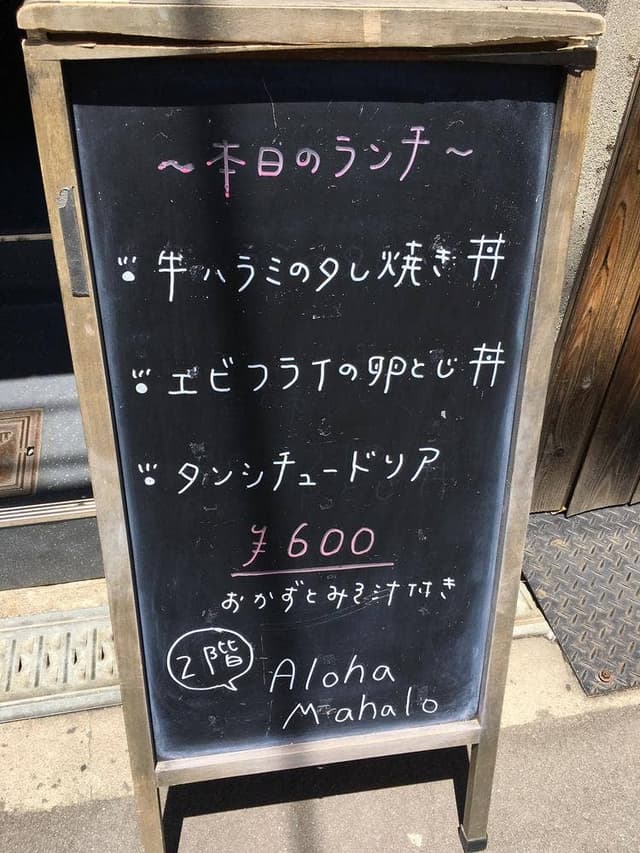 ～本日のランチ～
牛ハラミのタレ焼き丼
エビフライの卵とじ丼
タンシチュードリア
¥600
おかずとみそ汁付き
2階
Aloha
Mahalo